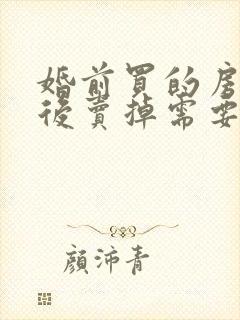 婚前買的房
後賣掉需要
顏沛青